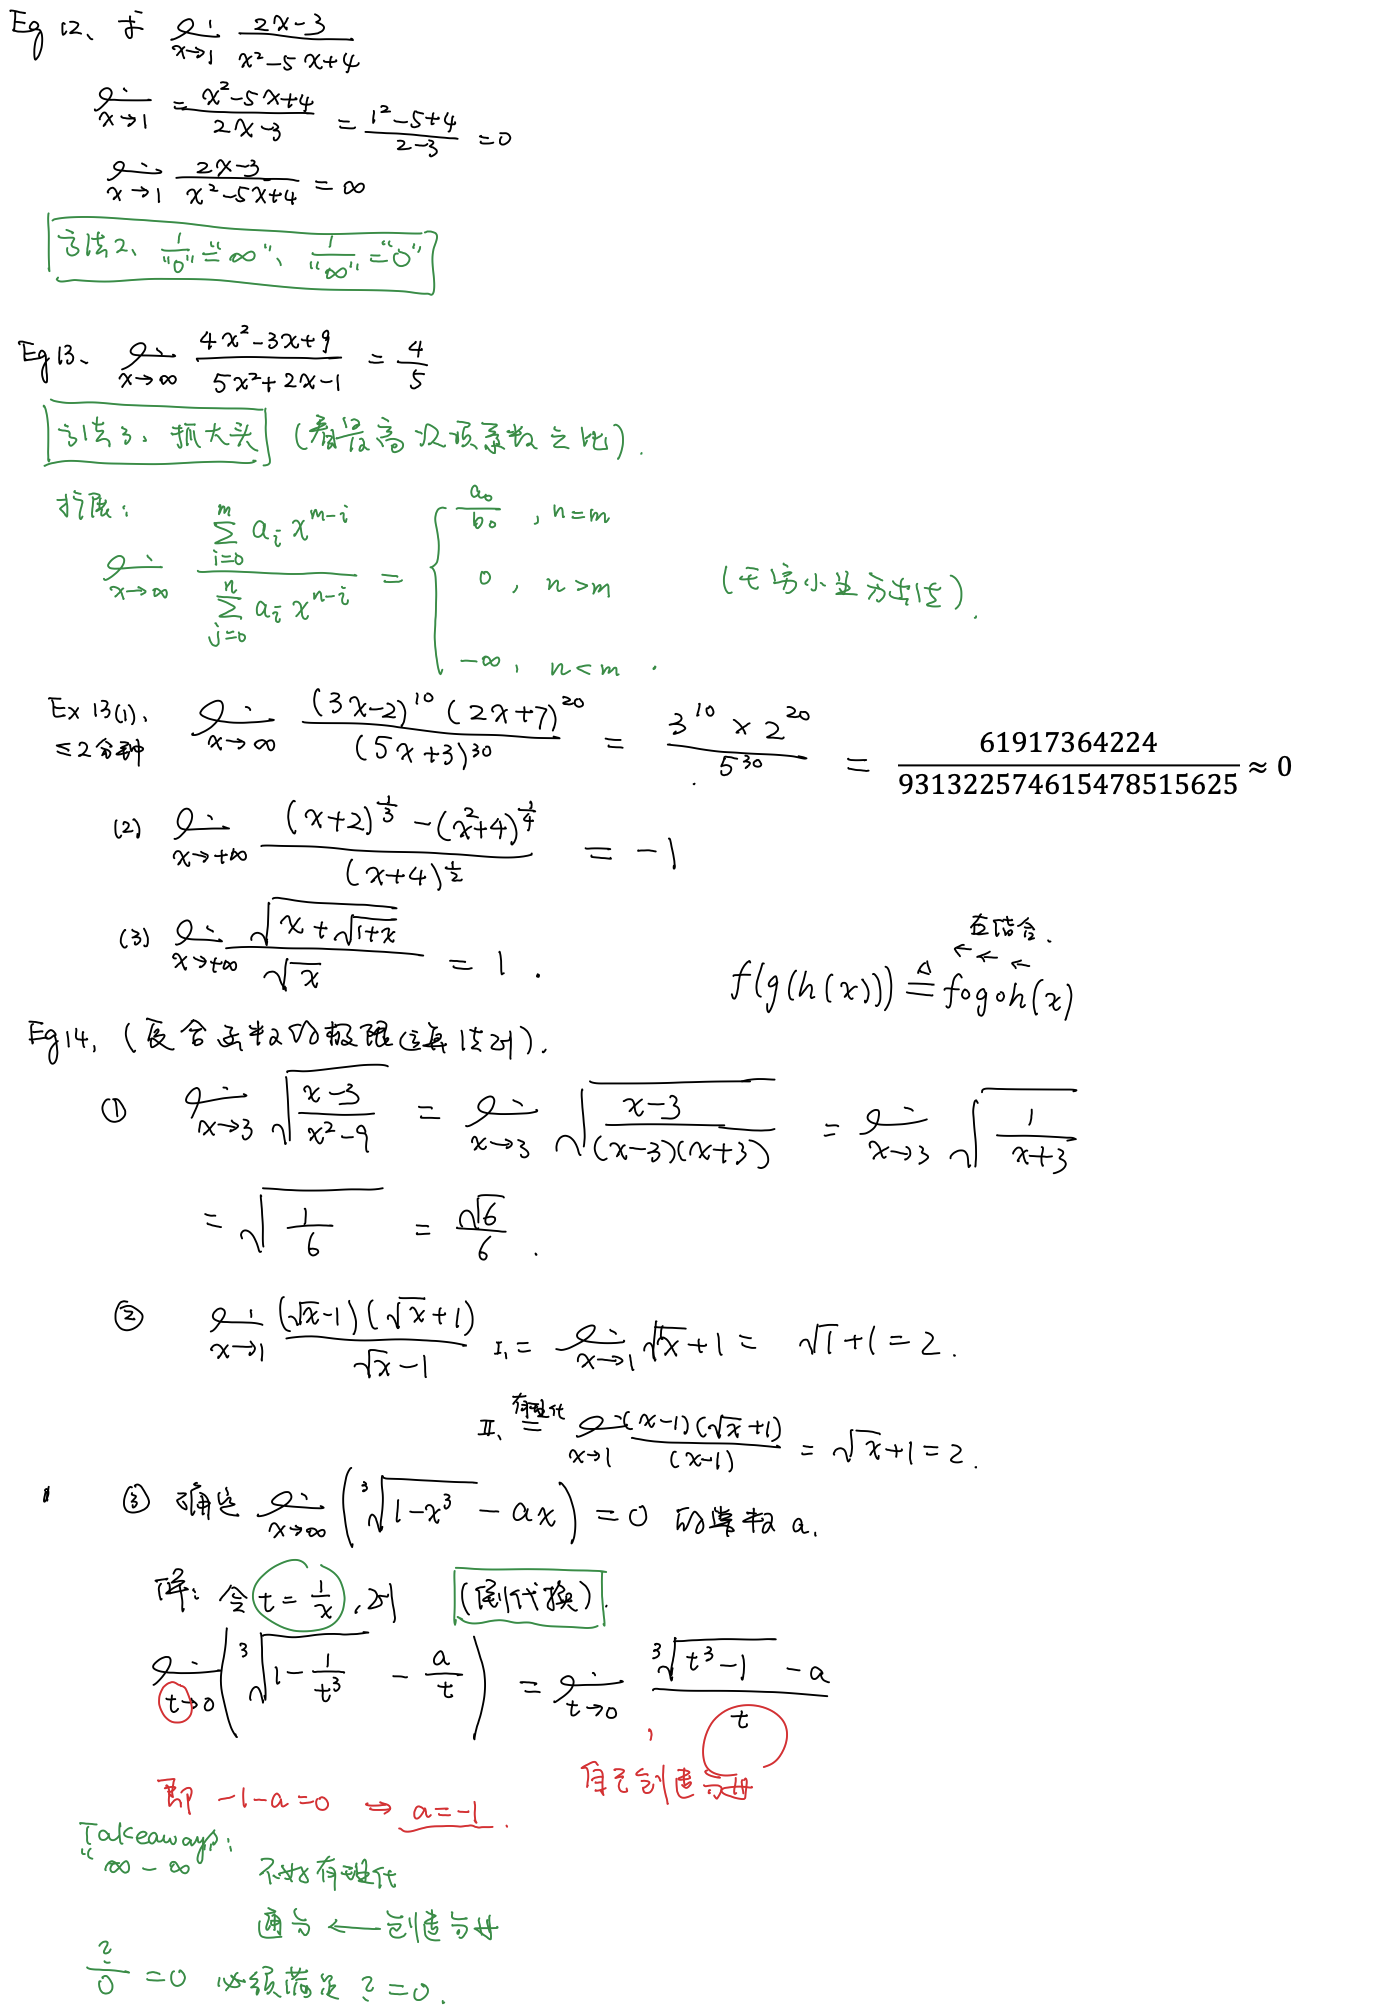 Eg 12、求 lim x→1 (2x-3)/(x²-5x+4)
lim x→1 = (x²-5x+4)/(2x-3) = (1²-5+4)/(2-3) = 0
lim x→1 (2x-3)/(x²-5x+4) = ∞
方法2、 1/"0" = "∞"、 1/"∞" = "0"
Eg 13、 lim x→∞ (4x²-3x+9)/(5x²+2x-1) = 4/5
方法3、抓大头 (看最高次项系数之比).
扩展：
lim x→∞ (∑_{i=0}^{m} a_i x^{m-i})/(∑_{j=0}^{n} a_i x^{n-i}) = { a₀/b₀ , n=m
0 , n>m (无穷小量分出法).
-∞ , n<m .
Ex 13(1)、 lim x→∞ ((3x-2)^10 (2x+7)^20)/((5x+3)^30) = (3^10 × 2^20)/5^30 = 61917364224/931322574615478515625 ≈ 0
≤2分钟
(2) lim x→+∞ ((x+2)^{1/3} - (x²+4)^{1/4})/((x+4)^{1/2}) = -1
(3) lim x→+∞ √(x+√(1+x))/√x = 1 .
右结合.
← ← ←
f(g(h(x))) ≜ f∘g∘h(x)
Eg14、(复合函数的极限运算法则).
① lim x→3 √((x-3)/(x²-9)) = lim x→3 √((x-3)/((x-3)(x+3))) = lim x→3 √(1/(x+3))
= √(1/6) = √6/6 .
② lim x→1 ((√x-1)(√x+1))/(√x-1) I、= lim x→1 √x+1 = √1+1 = 2 .
II、 有理化 = lim x→1 ((x-1)(√x+1))/(x-1) = √x+1 = 2 .
③ 确定 lim x→∞ (³√(1-x³) - ax) = 0 的常数a.
解：令 t = 1/x ,则 (倒代换).
lim t→0 (³√(1-1/t³) - a/t) = lim t→0 (³√(t³-1) - a)/t
创造分母
即 -1-a=0 ⇒ a=-1 .
Takeaways:
"∞-∞ 不好有理化
通分 ← 创造分母
?/0 = 0 必须满足 ?=0.